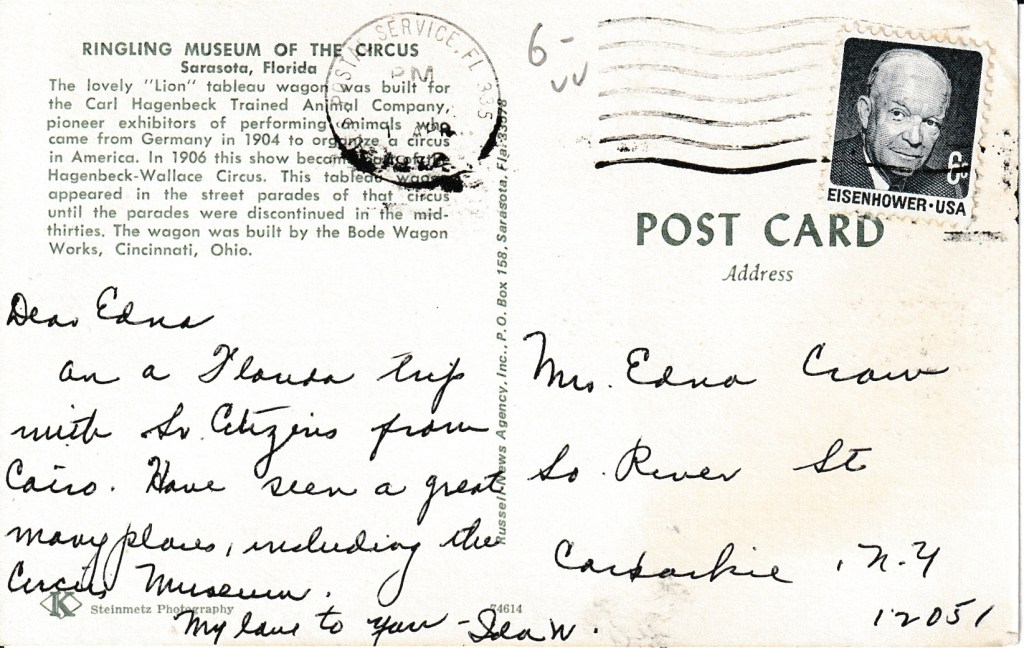 RINGLING MUSEUM OF THE CIRCUS
Sarasota, Florida
The lovely "Lion" tableau wagon was built for
the Carl Hagenbeck Trained Animal Company,
pioneer exhibitors of performing animals who
came from Germany in 1904 to organize a circus
in America. In 1906 this show became part of the
Hagenbeck-Wallace Circus. This tableau wagon
appeared in the street parades of that circus
until the parades were discontinued in the mid-
thirties. The wagon was built by the Bode Wagon
Works, Cincinnati, Ohio.
POSTAL SERVICE, FL 335
PM
APR
6-
EISENHOWER·USA
6c
POST CARD
Address
Russell News Agency, Inc., P.O. Box 158, Sarasota, Fla. 33578
Dear Edna
On a Florida trip
with Sr. Citizens from
Cairo. Have seen a great
many places, including the
Circus Museum.
My love to you - Ida W.
K
Steinmetz Photography
74614
Mrs. Edna Crow
So. River St
Coxsackie, N.Y
12051